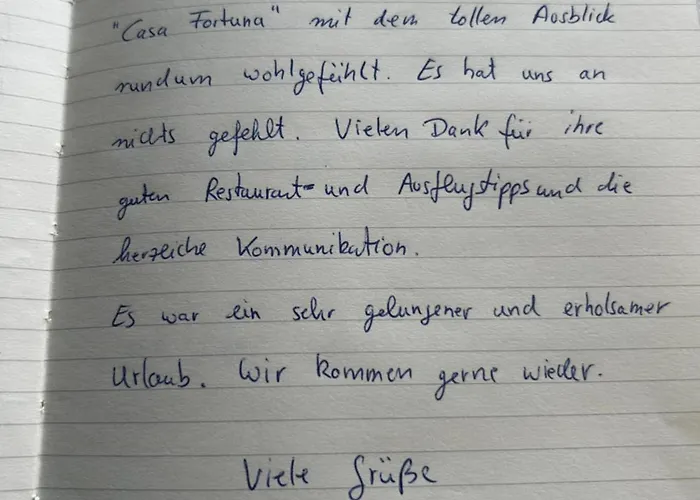 "Casa Fortuna" mit dem tollen Ausblick
rundum wohlgefühlt. Es hat uns an
nichts gefehlt. Vielen Dank für ihre
guten Restaurant- und Ausflugstipps und die
herzeiche Kommunikation.
Es war ein sehr gelungener und erholsamer
Urlaub. Wir kommen gerne wieder.
Viele Grüße